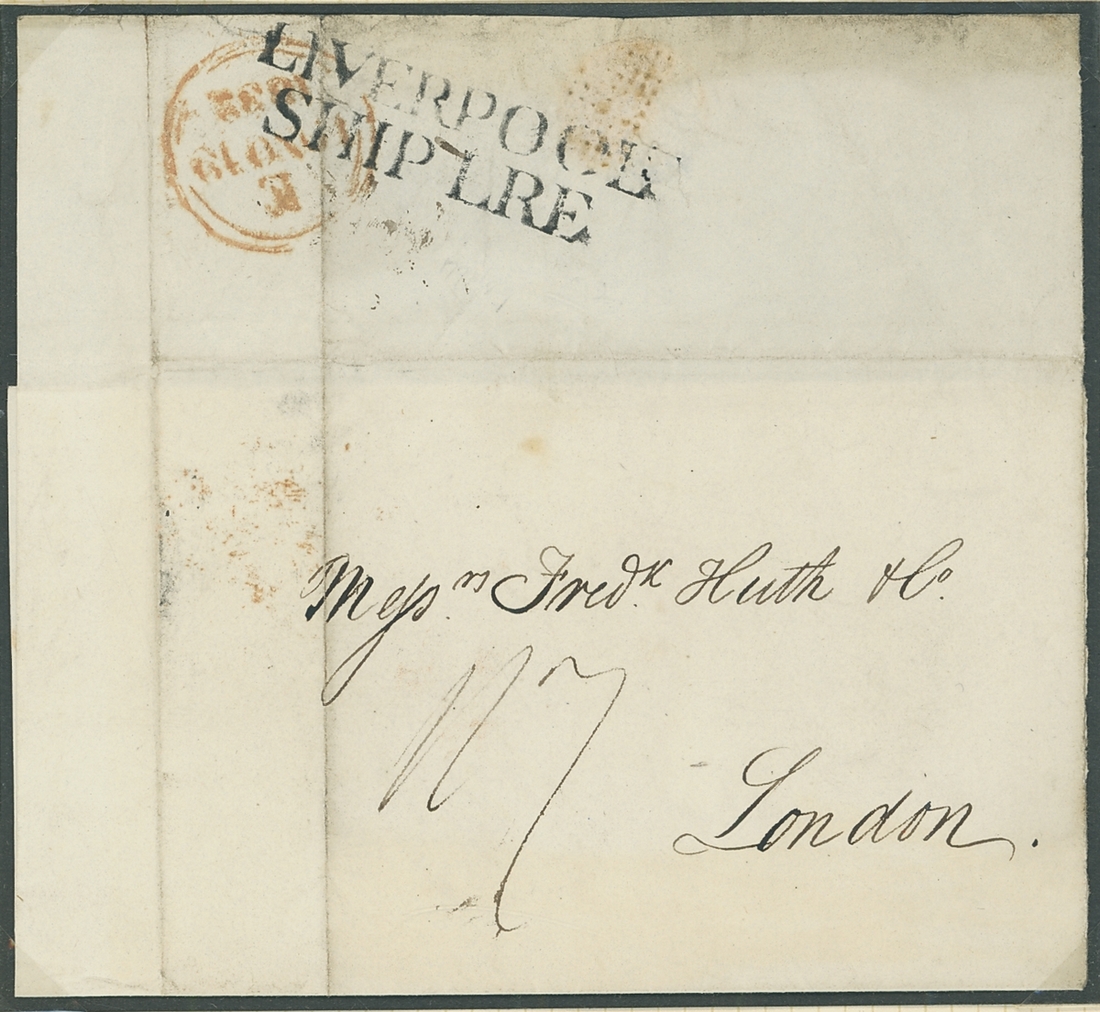 LIVERPOOL
SHIP LRE
Messrs. Fredk. Huth & Co.
London.